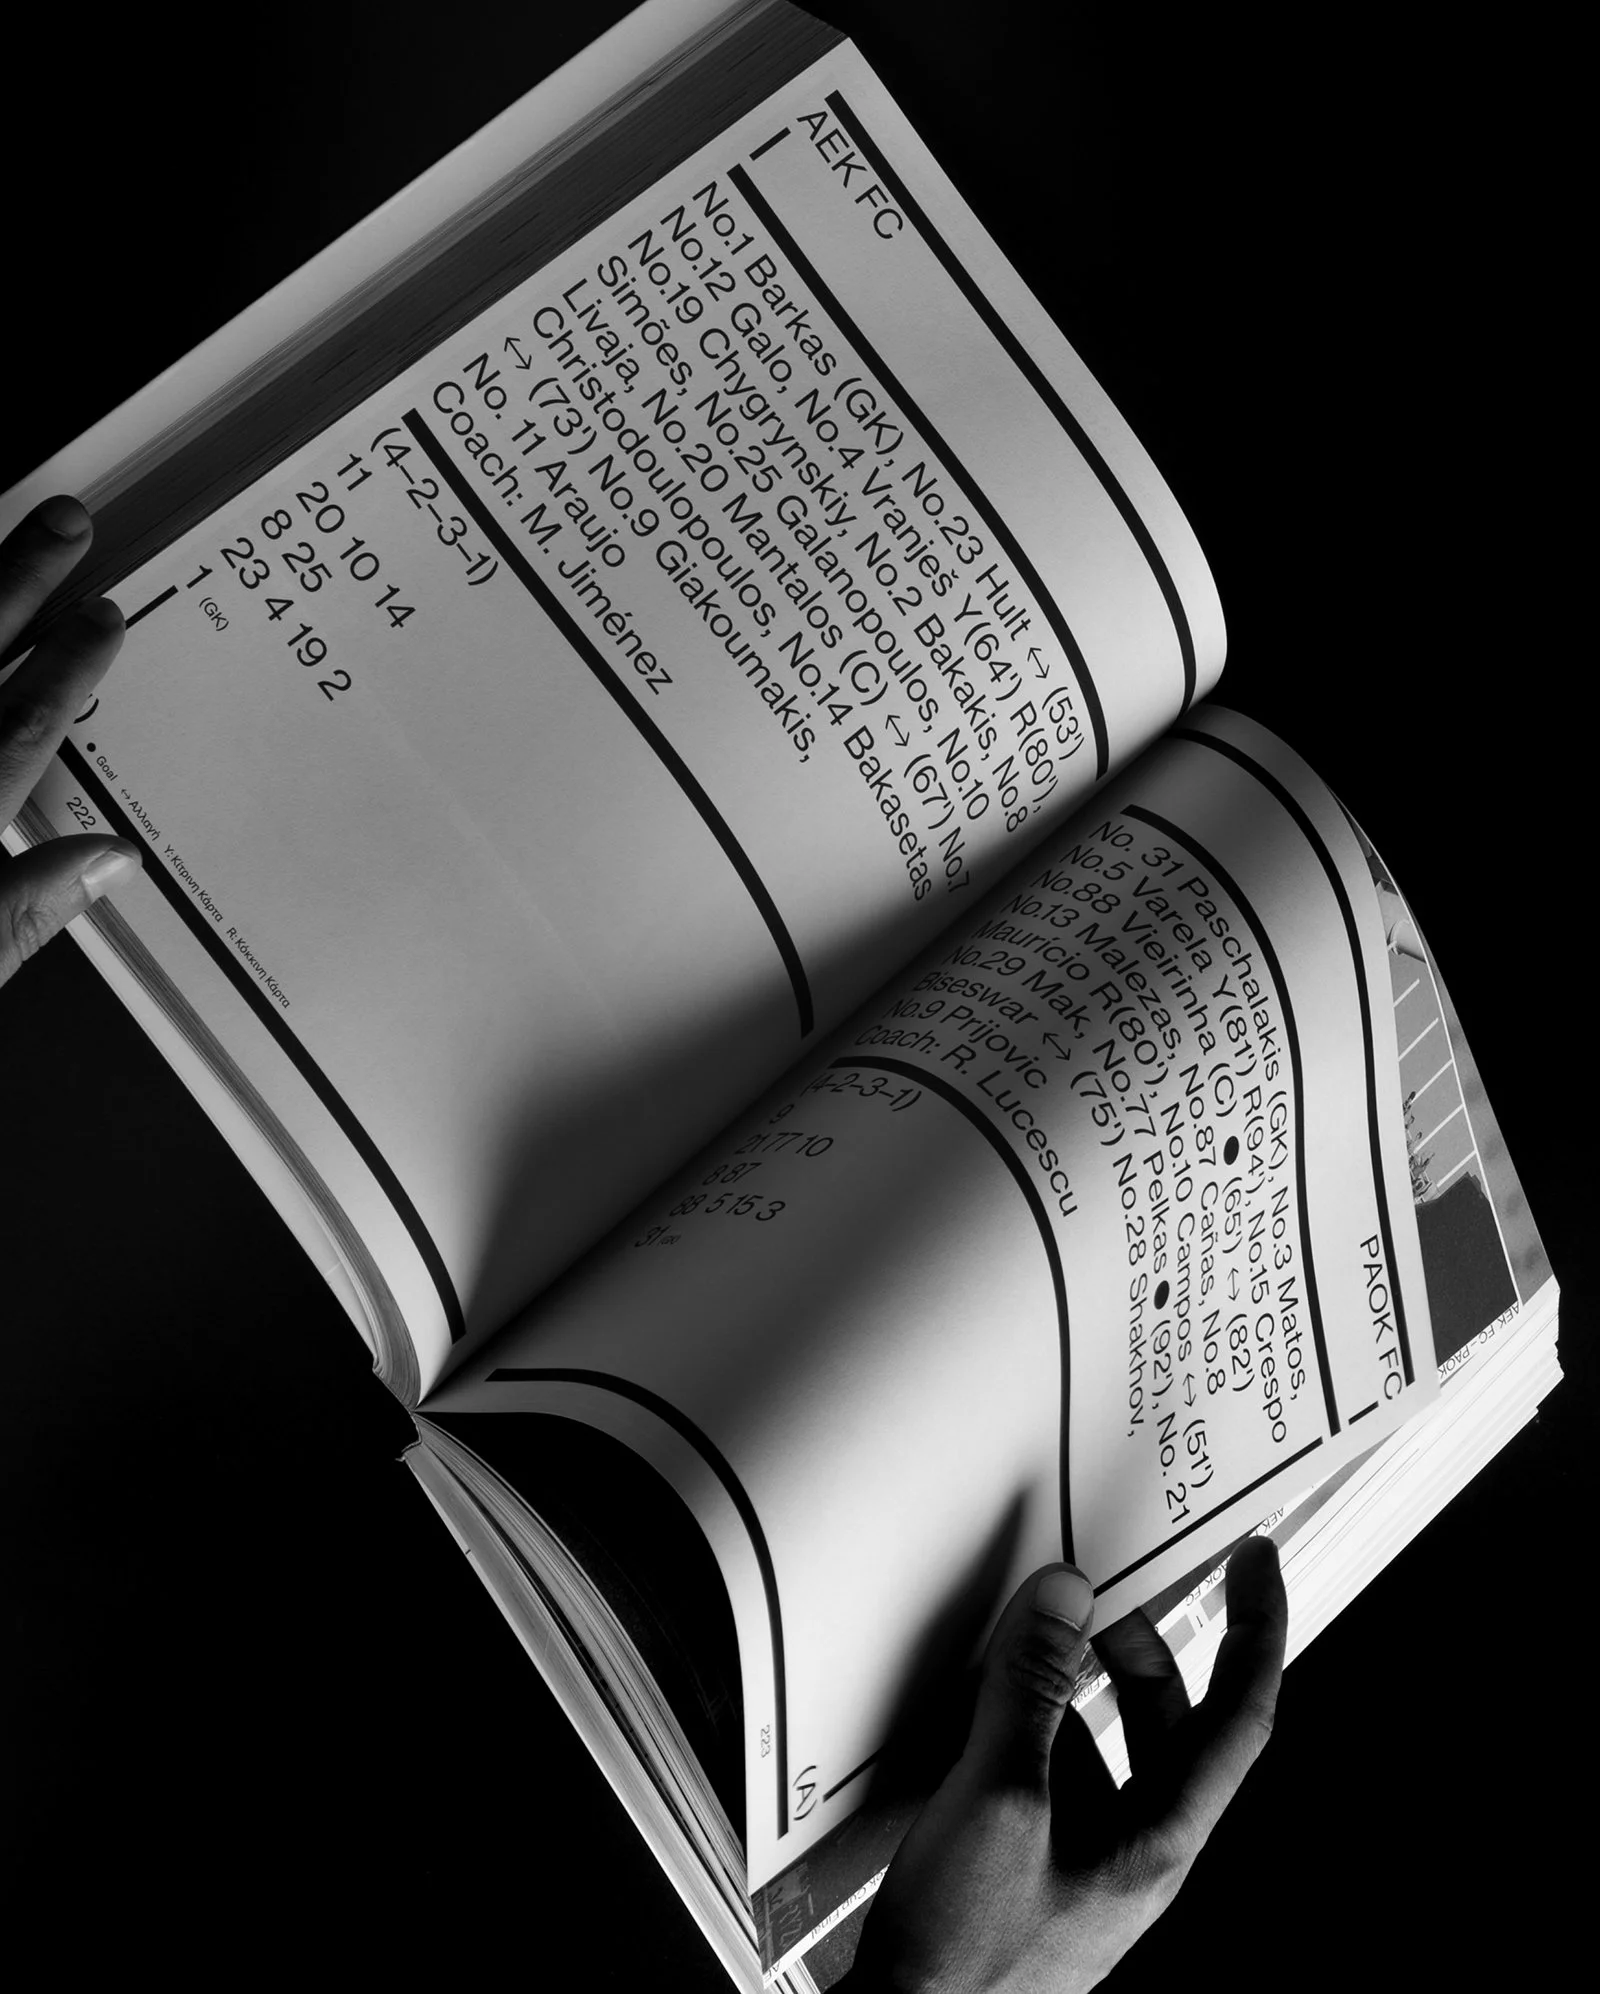 AEK FC
No.1 Barkas (GK), No.23 Hult ↔ (53')
No.12 Galo, No.4 Vranješ Y(64') R(80'),
No.19 Chygrynskiy, No.2 Bakakis, No.8
Simões, No.25 Galanopoulos, No.10
Livaja, No.20 Mantalos (C) ↔ (67') No.7
Christodoulopoulos, No.14 Bakasetas
↔ (73') No.9 Giakoumakis,
No. 11 Araujo
Coach: M. Jiménez
(4–2–3–1)
11
20 10 14
8 25
23 4 19 2
1 (GK)
● Goal ↔ Αλλαγή Y: Κίτρινη Κάρτα R: Κόκκινη Κάρτα
222
PAOK FC
No. 31 Paschalakis (GK), No.3 Matos,
No.5 Varela Y(81') R(94'), No.15 Crespo
No.88 Vieirinha (C) ● (65') ↔ (82')
No.13 Malezas, No.87 Cañas, No.8
Maurício R(80'), No.10 Campos ↔ (51')
No.29 Mak, No.77 Pelkas ● (92'), No. 21
Biseswar ↔ (75') No.28 Shakhov,
No.9 Prijovic
Coach: R. Lucescu
(4–2–3–1)
9
21 77 10
8 87
88 5 15 3
31 (GK)
223
(A)
AEK FC – PAOK